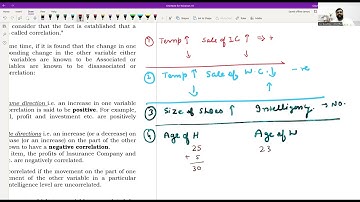 consider that the fact is established that a
called correlation."
one time, if it is found that the change in one
ponding change in the other variable either
variables are known to be Associated or
ables are known to be disassociated or
orrelation:
same direction i.e. an increase in one variable
rrelation is said to be positive. For example,
l, profit and investment etc. are positively
site directions i.e. an increase (or a decrease) on
ease (or an increase) on the part of the other
own to have a negative correlation.
item, the profits of Insurance Company and
c. are negatively correlated.
lated if the movement on the part of one
ment of the other variable in a particular
telligence level are uncorrelated.
① Temp ↑ Sale of IC ↑ ⇒ +
② Temp ↑ Sale of W.C. ↓ - ve
③ Size of Shoes ↑ Intelligency → No.
④ Age of H Age of W
25 23
+ 5
30